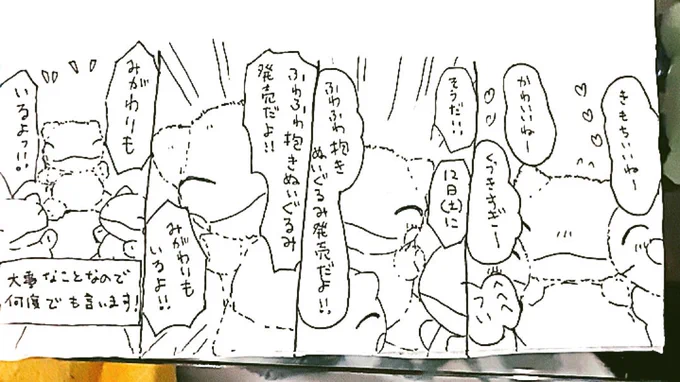 きもちいいねー
かわいいねー
くっつきすぎー
へへへ
つい
そうだ!!
12日(土)に
ふわふわ抱き
ぬいぐるみ発売だよ!!
ふわふわ抱きぬいぐるみ
発売だよ!!
みがわりも
いるよ!!
みがわりも
いるよッ!!
大事なことなので
何度でも言います!